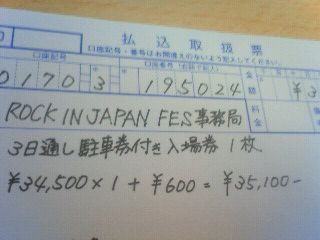 払込取扱票
口座記号・番号はお間違えのないよう記入してください。
口座記号 口座番号(右詰で記入) 金額
0170 3 195024 ¥3
料金
ROCK IN JAPAN FES事務局
3日通し駐車券付き入場券 1枚
¥34,500×1+¥600=¥35,100-